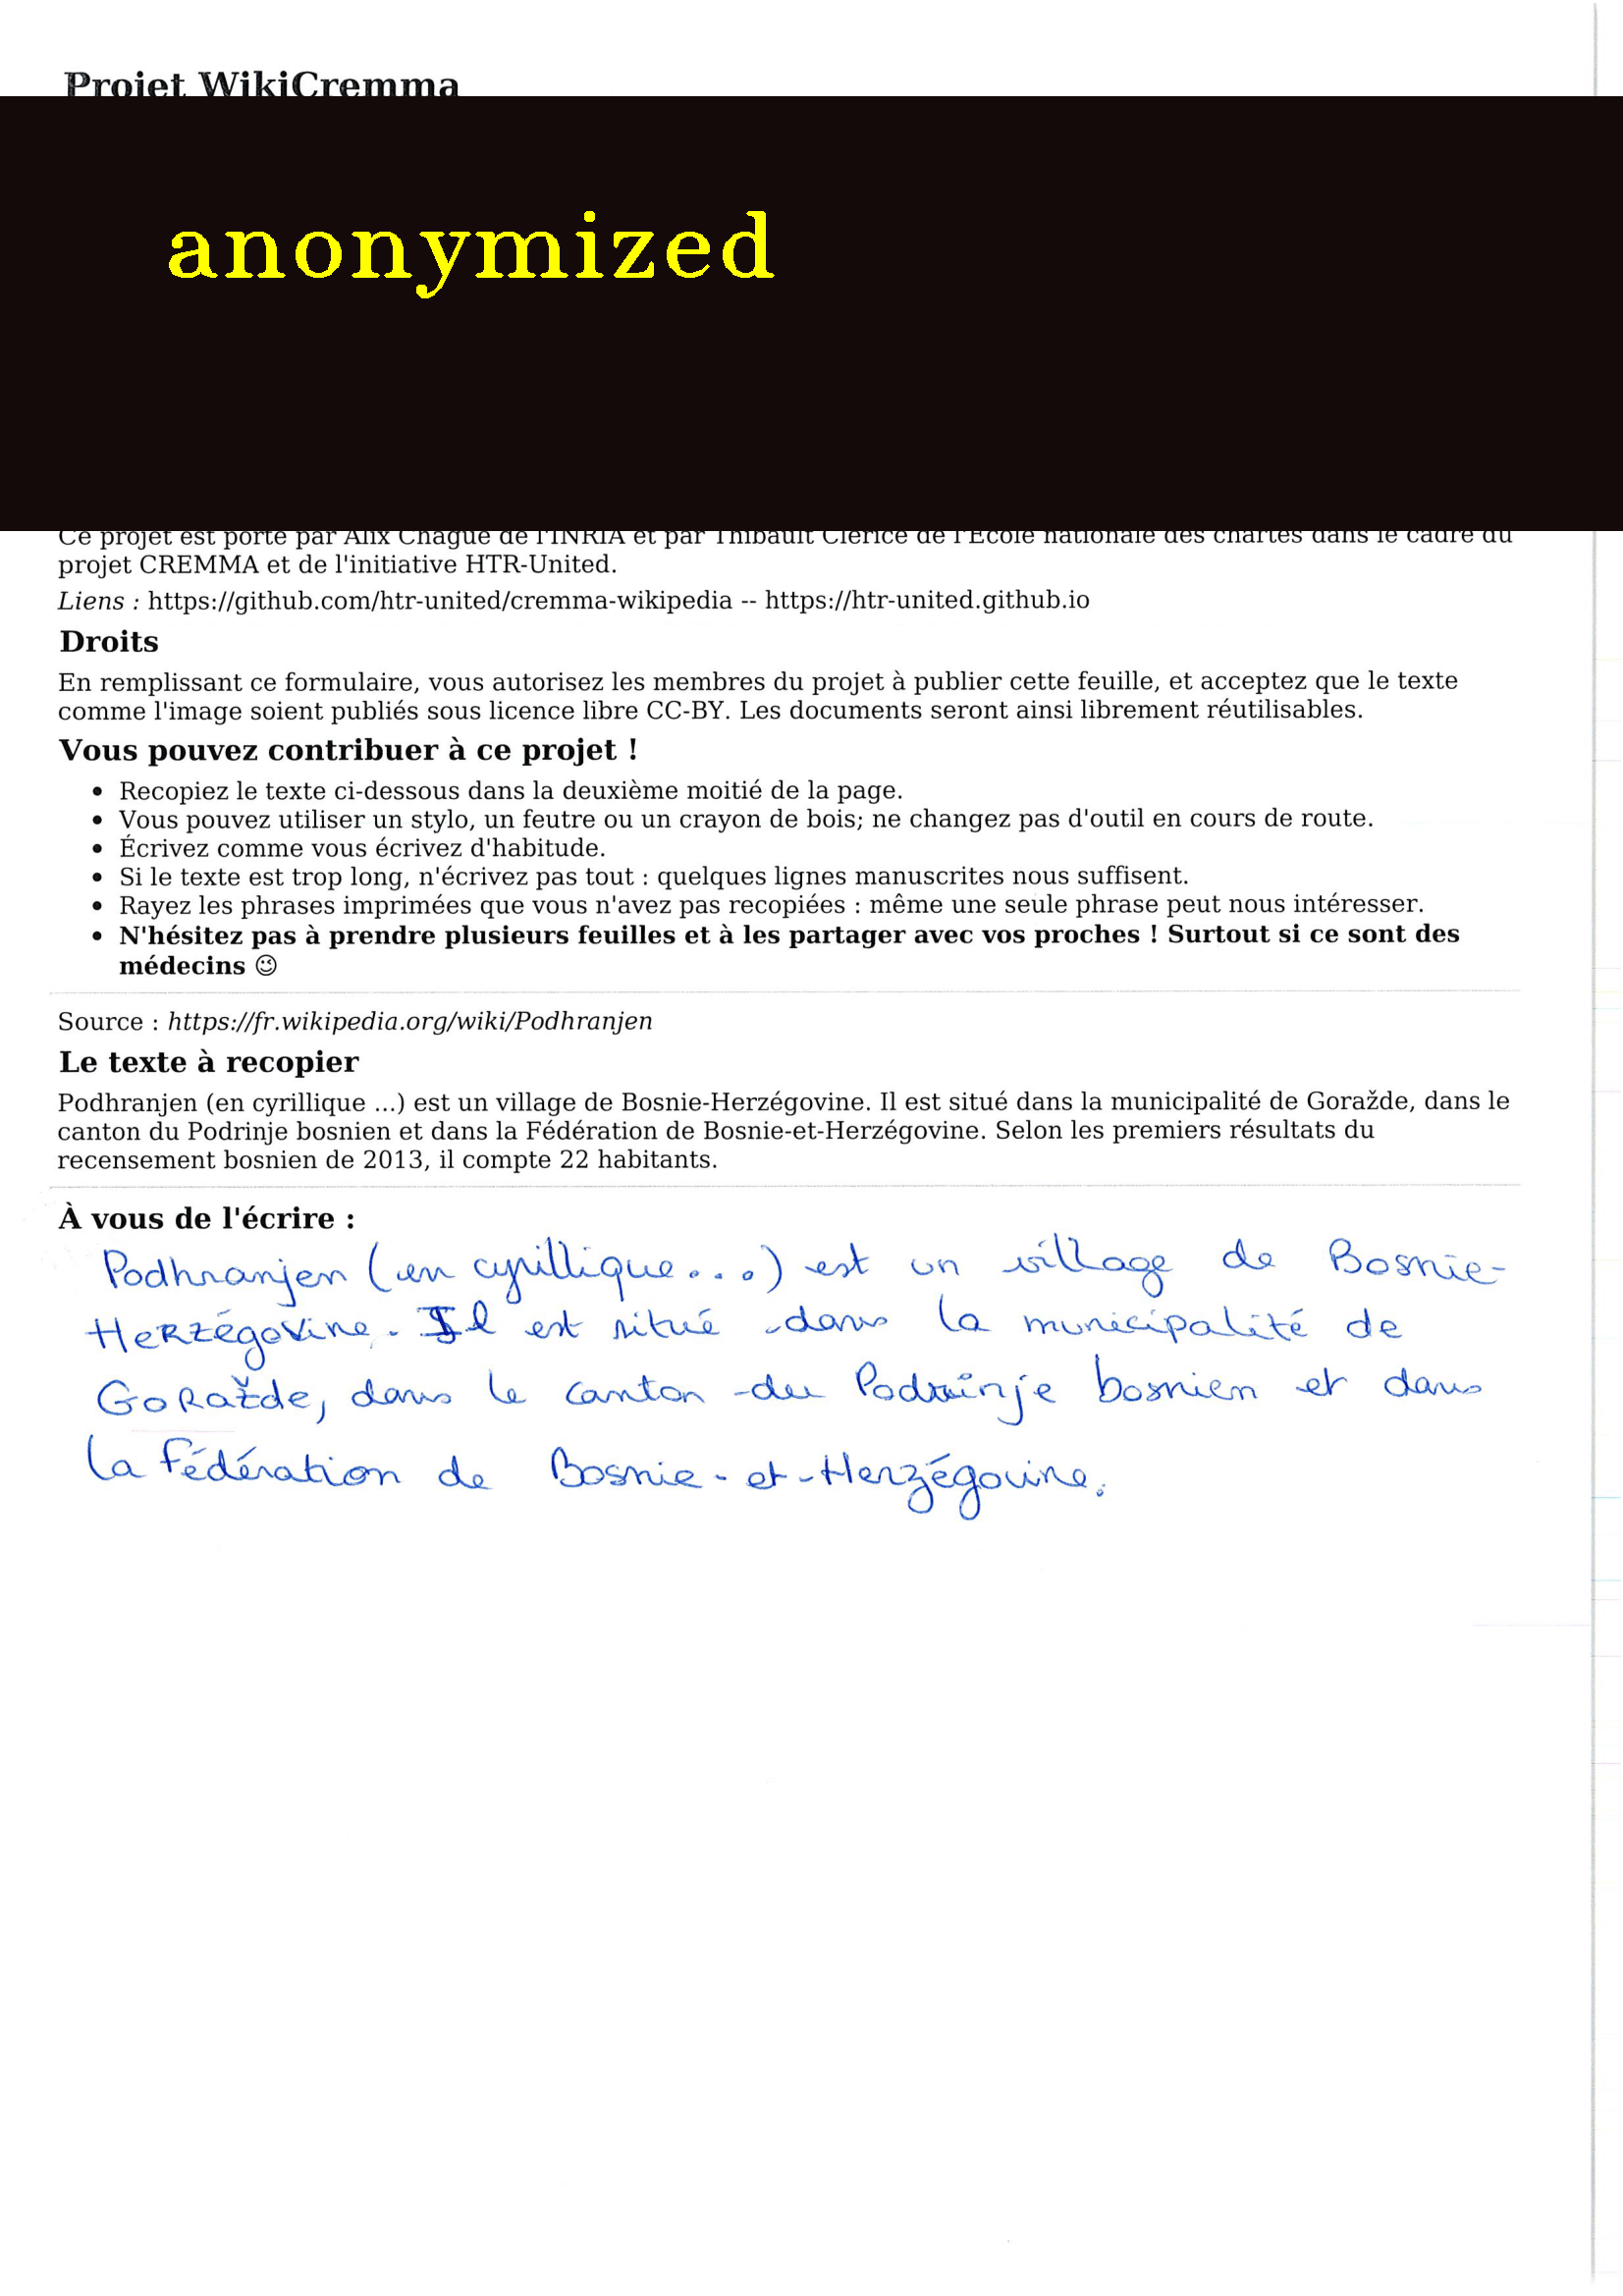 Projet WikiCremma
anonymized
Ce projet est porté par Alix Chagué de l'INRIA et par Thibault Clérice de l'École nationale des chartes dans le cadre du
projet CREMMA et de l'initiative HTR-United.
Liens : https://github.com/htr-united/cremma-wikipedia -- https://htr-united.github.io
Droits
En remplissant ce formulaire, vous autorisez les membres du projet à publier cette feuille, et acceptez que le texte
comme l'image soient publiés sous licence libre CC-BY. Les documents seront ainsi librement réutilisables.
Vous pouvez contribuer à ce projet !
• Recopiez le texte ci-dessous dans la deuxième moitié de la page.
• Vous pouvez utiliser un stylo, un feutre ou un crayon de bois; ne changez pas d'outil en cours de route.
• Écrivez comme vous écrivez d'habitude.
• Si le texte est trop long, n'écrivez pas tout : quelques lignes manuscrites nous suffisent.
• Rayez les phrases imprimées que vous n'avez pas recopiées : même une seule phrase peut nous intéresser.
• N'hésitez pas à prendre plusieurs feuilles et à les partager avec vos proches ! Surtout si ce sont des
médecins 😉
Source : https://fr.wikipedia.org/wiki/Podhranjen
Le texte à recopier
Podhranjen (en cyrillique ...) est un village de Bosnie-Herzégovine. Il est situé dans la municipalité de Goražde, dans le
canton du Podrinje bosnien et dans la Fédération de Bosnie-et-Herzégovine. Selon les premiers résultats du
recensement bosnien de 2013, il compte 22 habitants.
À vous de l'écrire :
Podhranjen (en cyrillique...) est un village de Bosnie-
Herzégovine. Il est situé dans la municipalité de
Goražde, dans le canton du Podrinje bosnien et dans
la Fédération de Bosnie-et-Herzégovine.